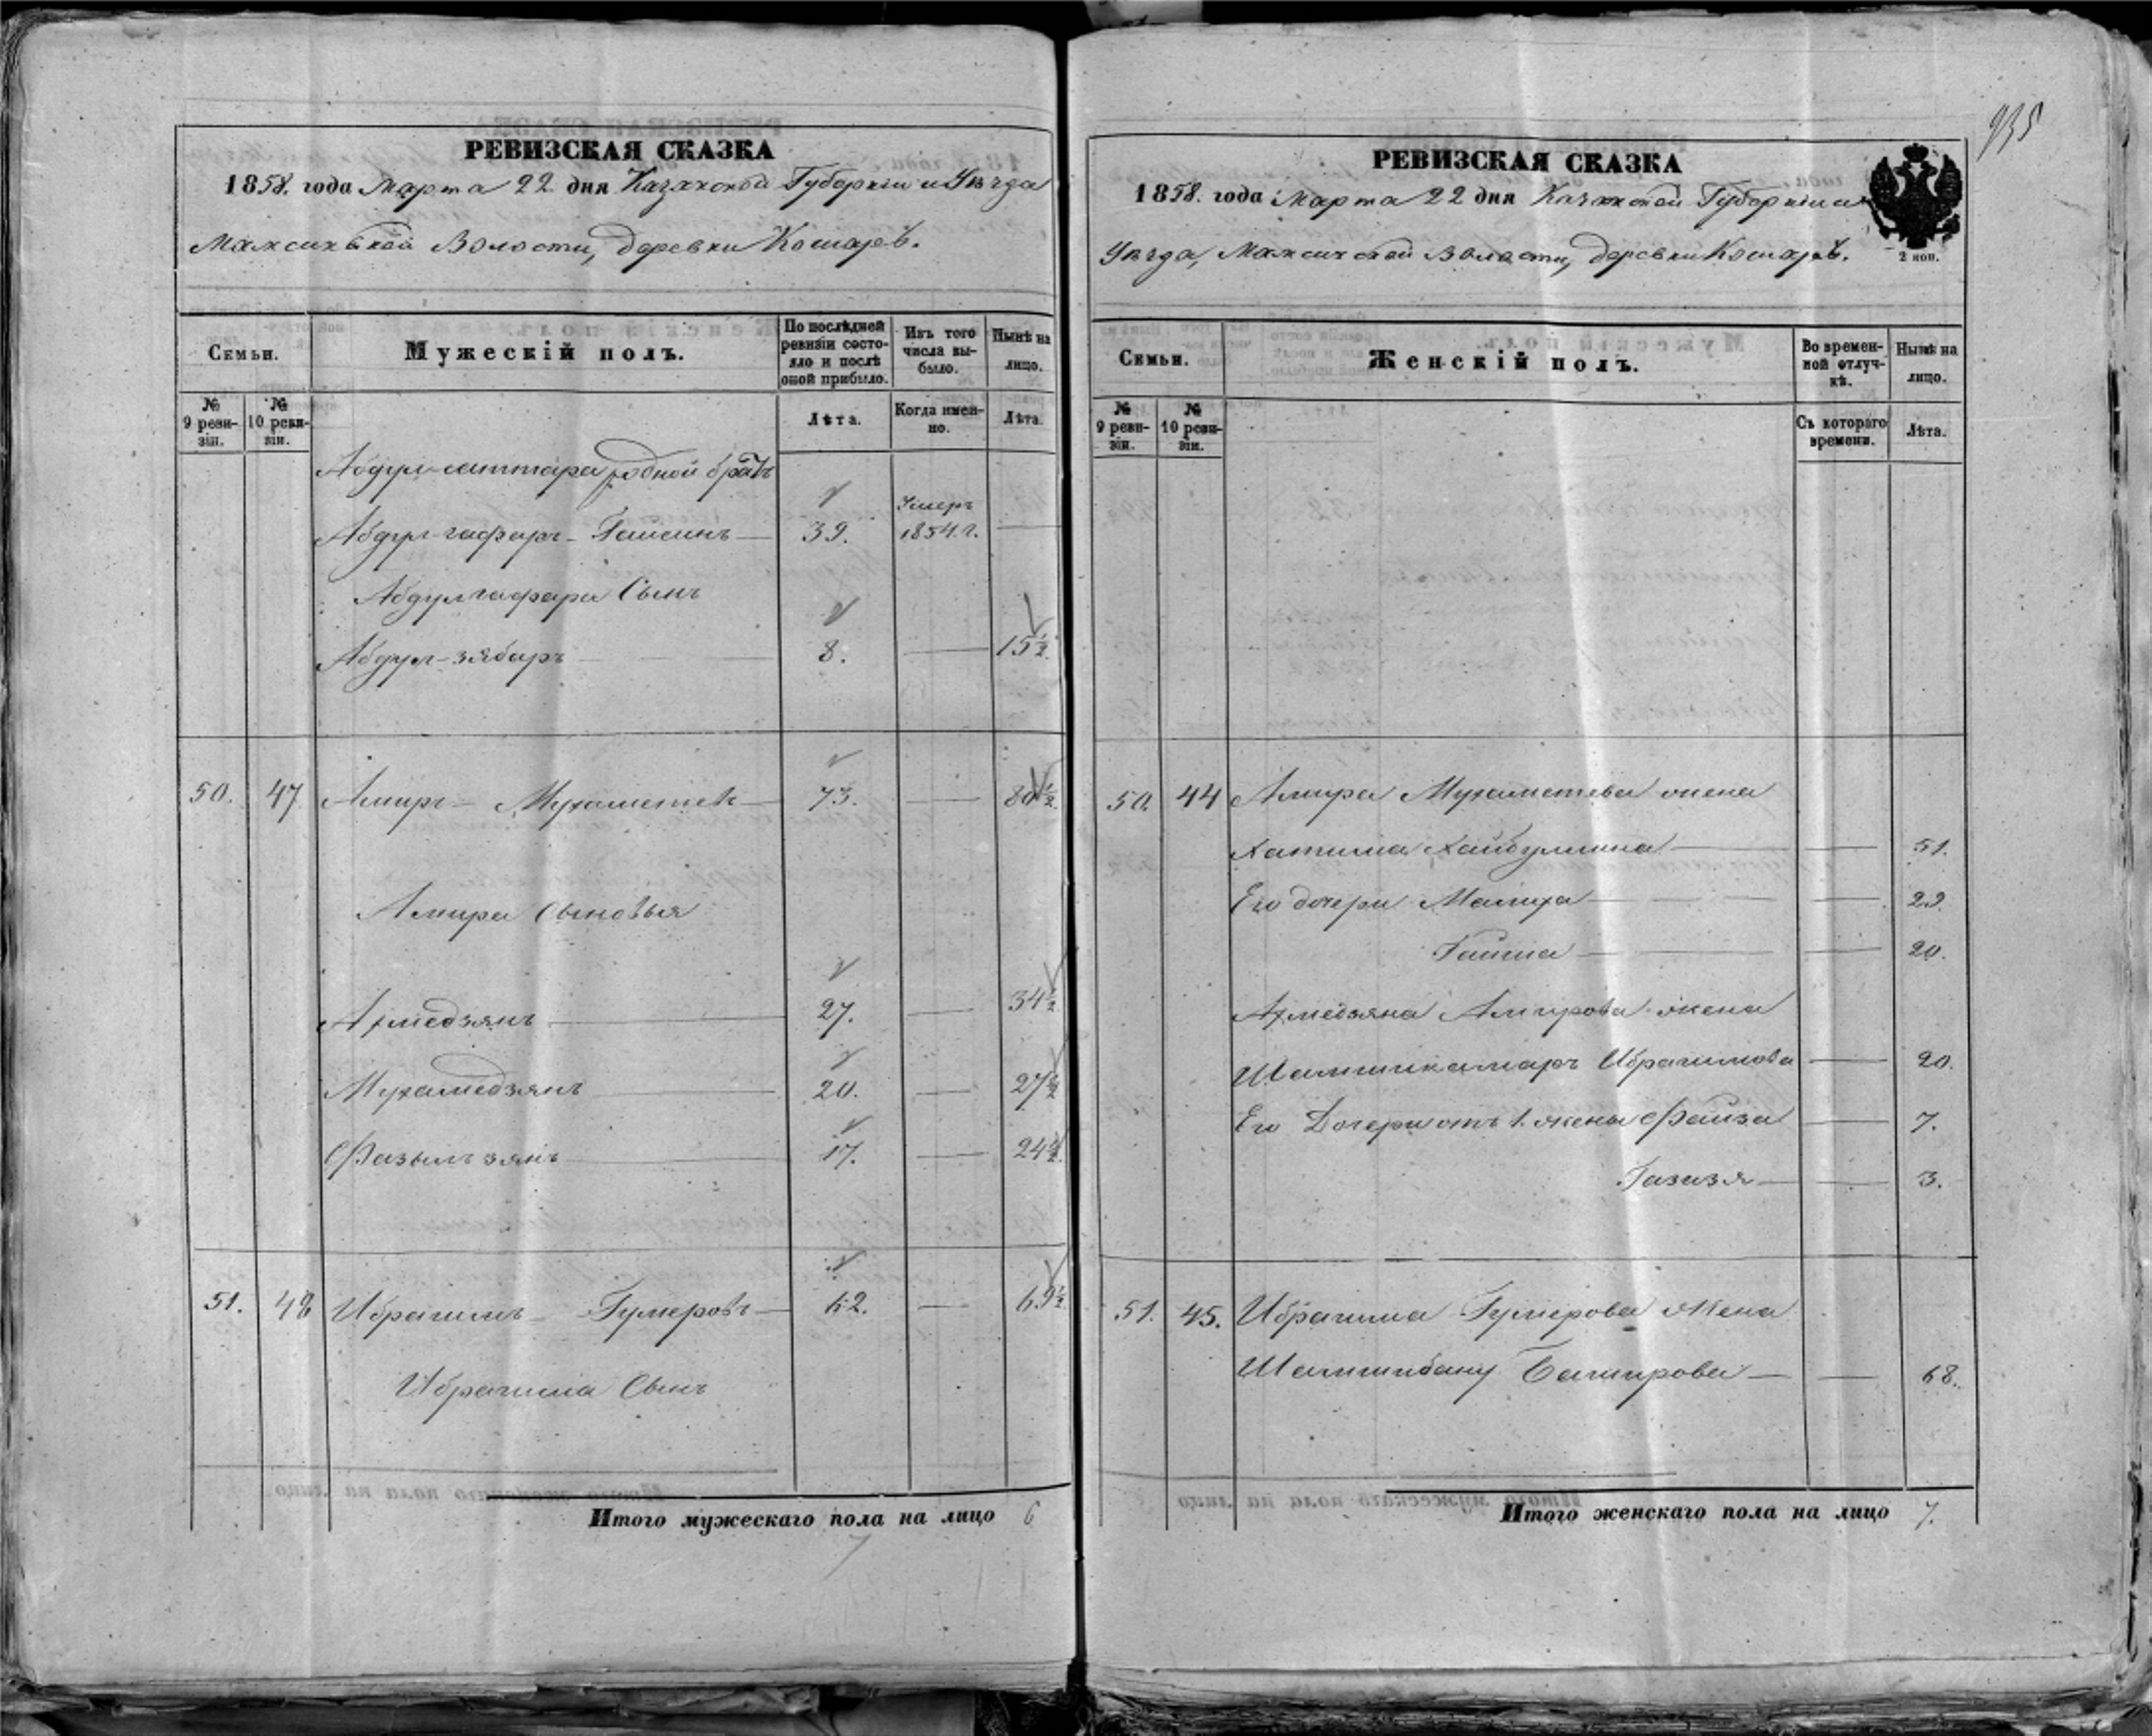 935
РЕВИЗСКАЯ СКАЗКА
1858. года Марта 22 дня Казанской Губернии и Уѣзда
Мамсинской Волости, деревни Кошаръ.
Семьи.
Мужескій полъ.
По послѣдней ревизіи состояло и послѣ оной прибыло.
Изъ того числа выбыло.
Нынѣ на лицо.
№ 9 ревизіи.
№ 10 ревизіи.
Лѣта.
Когда именно.
Лѣта.
Абдул-саттара родной братъ
Абдул-гафаръ - Гайсинъ — 39. Умеръ 1854. г. —
Абдулгафара Сынъ
Абдул-зябаръ — 8. — 15 ½.
50. 47 Амиръ - Мухаметевъ — 73. — 80 ½.
Амира Сыновья
Ахмедзянъ — 27. — 34 ½
Мухамедзянъ — 20. — 27 ½
Фазылъ зянъ — 17. — 24 ½.
51. 48 Ибрагимъ - Гумеровъ — 62. — 69 ½
Ибрагима Сынъ
Итого мужескаго пола на лицо 6
РЕВИЗСКАЯ СКАЗКА
1858. года Марта 22 дня Казанской Губерніи и
Уѣзда, Мамсинской Волости, деревни Кошаръ.
2 коп.
Семьи.
Женскій полъ.
Во временной отлучкѣ.
Нынѣ на лицо.
№ 9 ревизіи.
№ 10 ревизіи.
Съ котораго времени.
Лѣта.
50. 44 Амира Мухаметева жена
Хатима Хайбуллина — — 51.
Его дочери Малиха — — 22.
Гайша — — 20.
Ахмедзяна Амирова жена
Шамшикамаръ Ибрагимова — 20.
Его Дочери отъ 1. жены Файза — 7.
Газизя — — 3.
51. 45. Ибрагима Гумерова Жена
Шамшибану Баширова — — 68.
Итого женскаго пола на лицо 7.